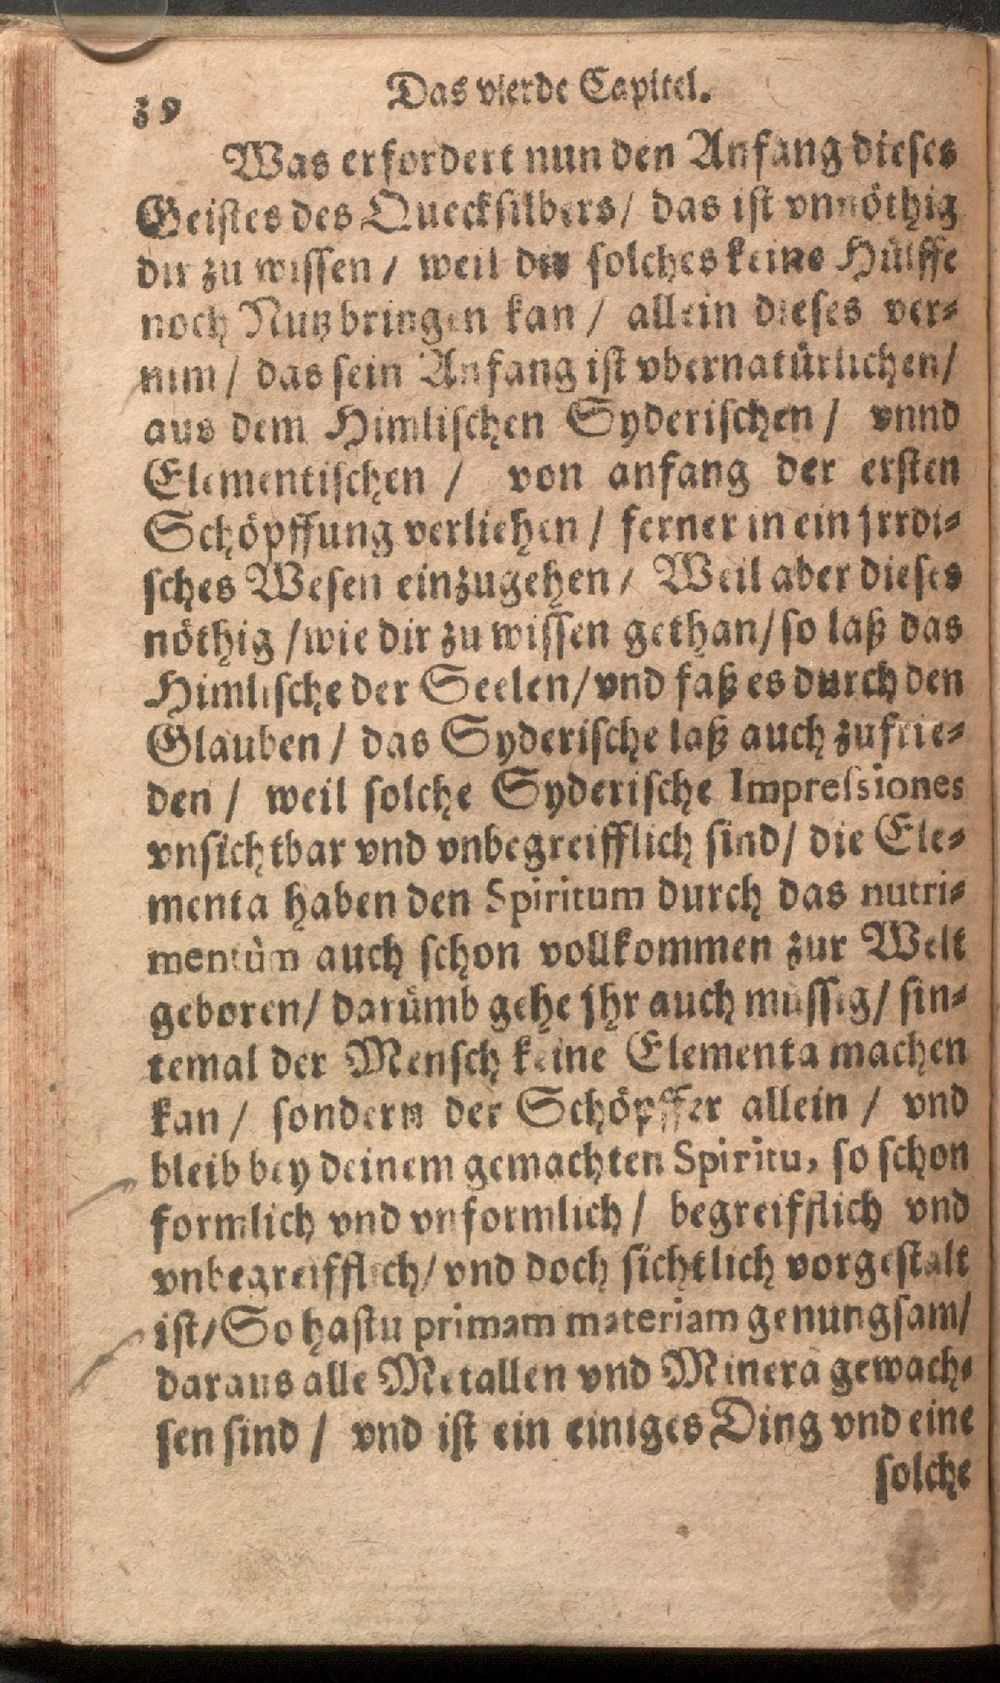 39
Das vierde Capitel.
Was erfordert nun den Anfang dieses
Geistes des Quecksilbers/ das ist vnnöthig
dir zu wissen / weil dir solches keine Hülffe
noch Nutz bringen kan / allein dieses ver-
nim / das sein Anfang ist vbernatürlichen/
aus dem Himlischen Syderischen / vnnd
Elementischen / von anfang der ersten
Schöpffung verliehen / ferner in ein jrrdi-
sches Wesen einzugehen / Weil aber dieses
nöthig /wie dir zu wissen gethan/ so laß das
Himlische der Seelen/ vnd faß es durch den
Glauben / das Syderische laß auch zufrie-
den / weil solche Syderische Impressiones
vnsichtbar vnd vnbegreifflich sind/ die Ele-
menta haben den Spiritum durch das nutri-
mentùm auch schon vollkommen zur Welt
geboren/ darümb gehe jhr auch müssig/ sin-
temal der Mensch keine Elementa machen
kan / sondern der Schöpffer allein / vnd
bleib bey deinem gemachten Spiritu, so schon
formlich vnd vnformlich / begreifflich vnd
vnbegreifflich/ vnd doch sichtlich vorgestalt
ist/ So hastu primam materiam genungsam/
daraus alle Metallen vnd Minera gewach-
sen sind / vnd ist ein einiges Ding vnd eine
solche